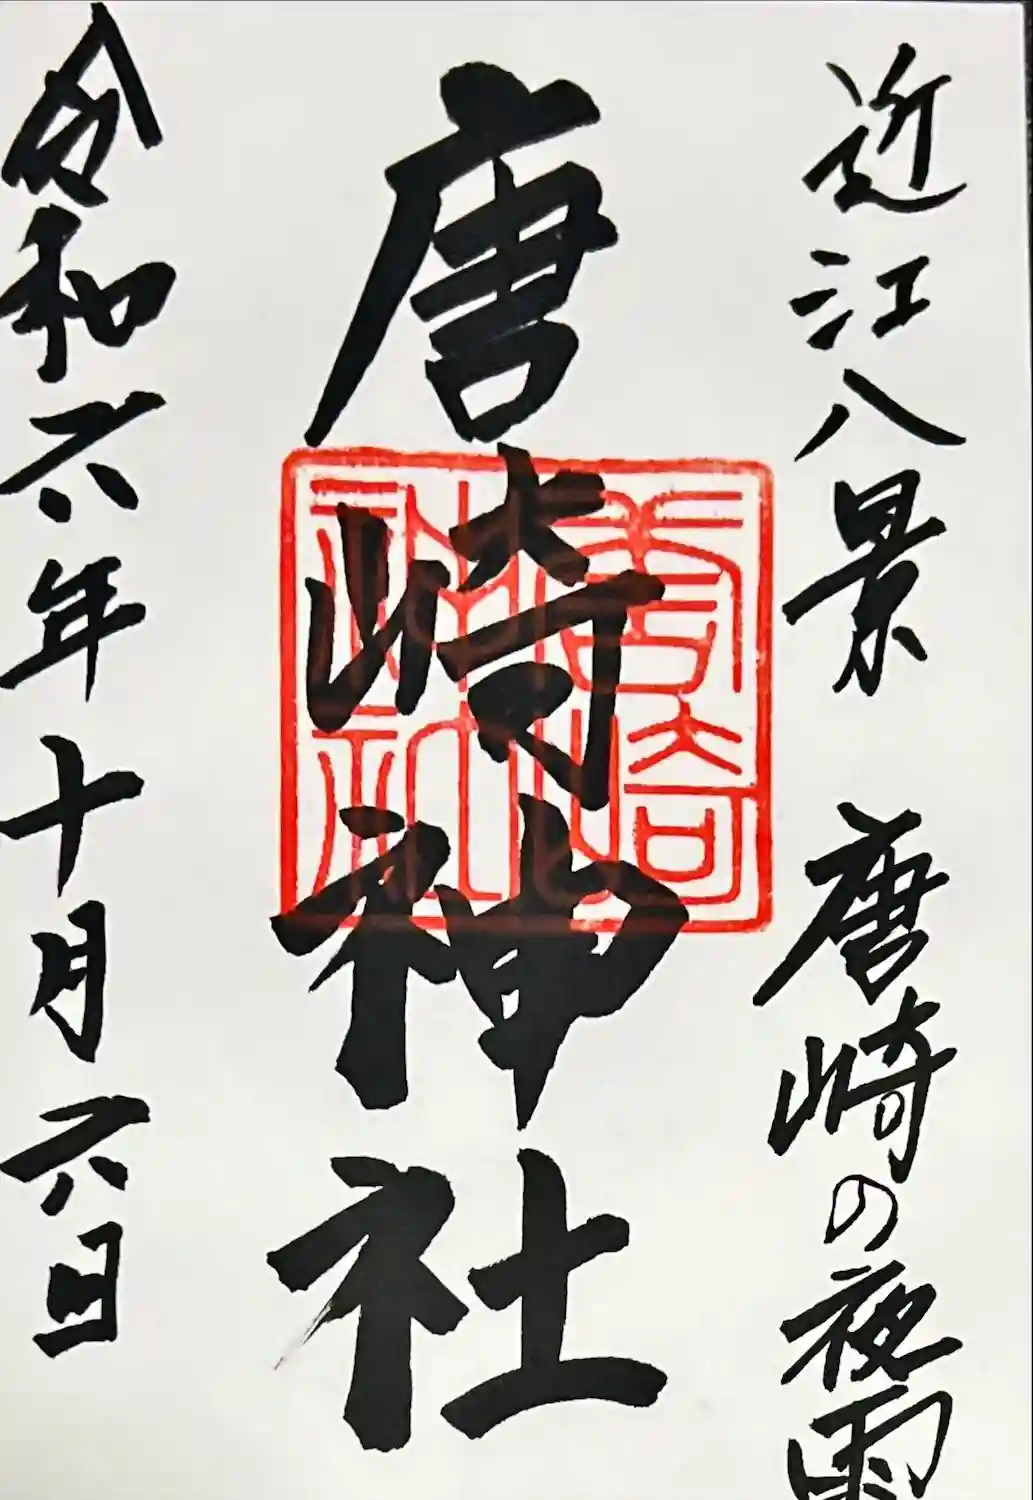 近江八景 唐崎の夜雨
唐崎神社
唐崎神社
令和六年十月六日